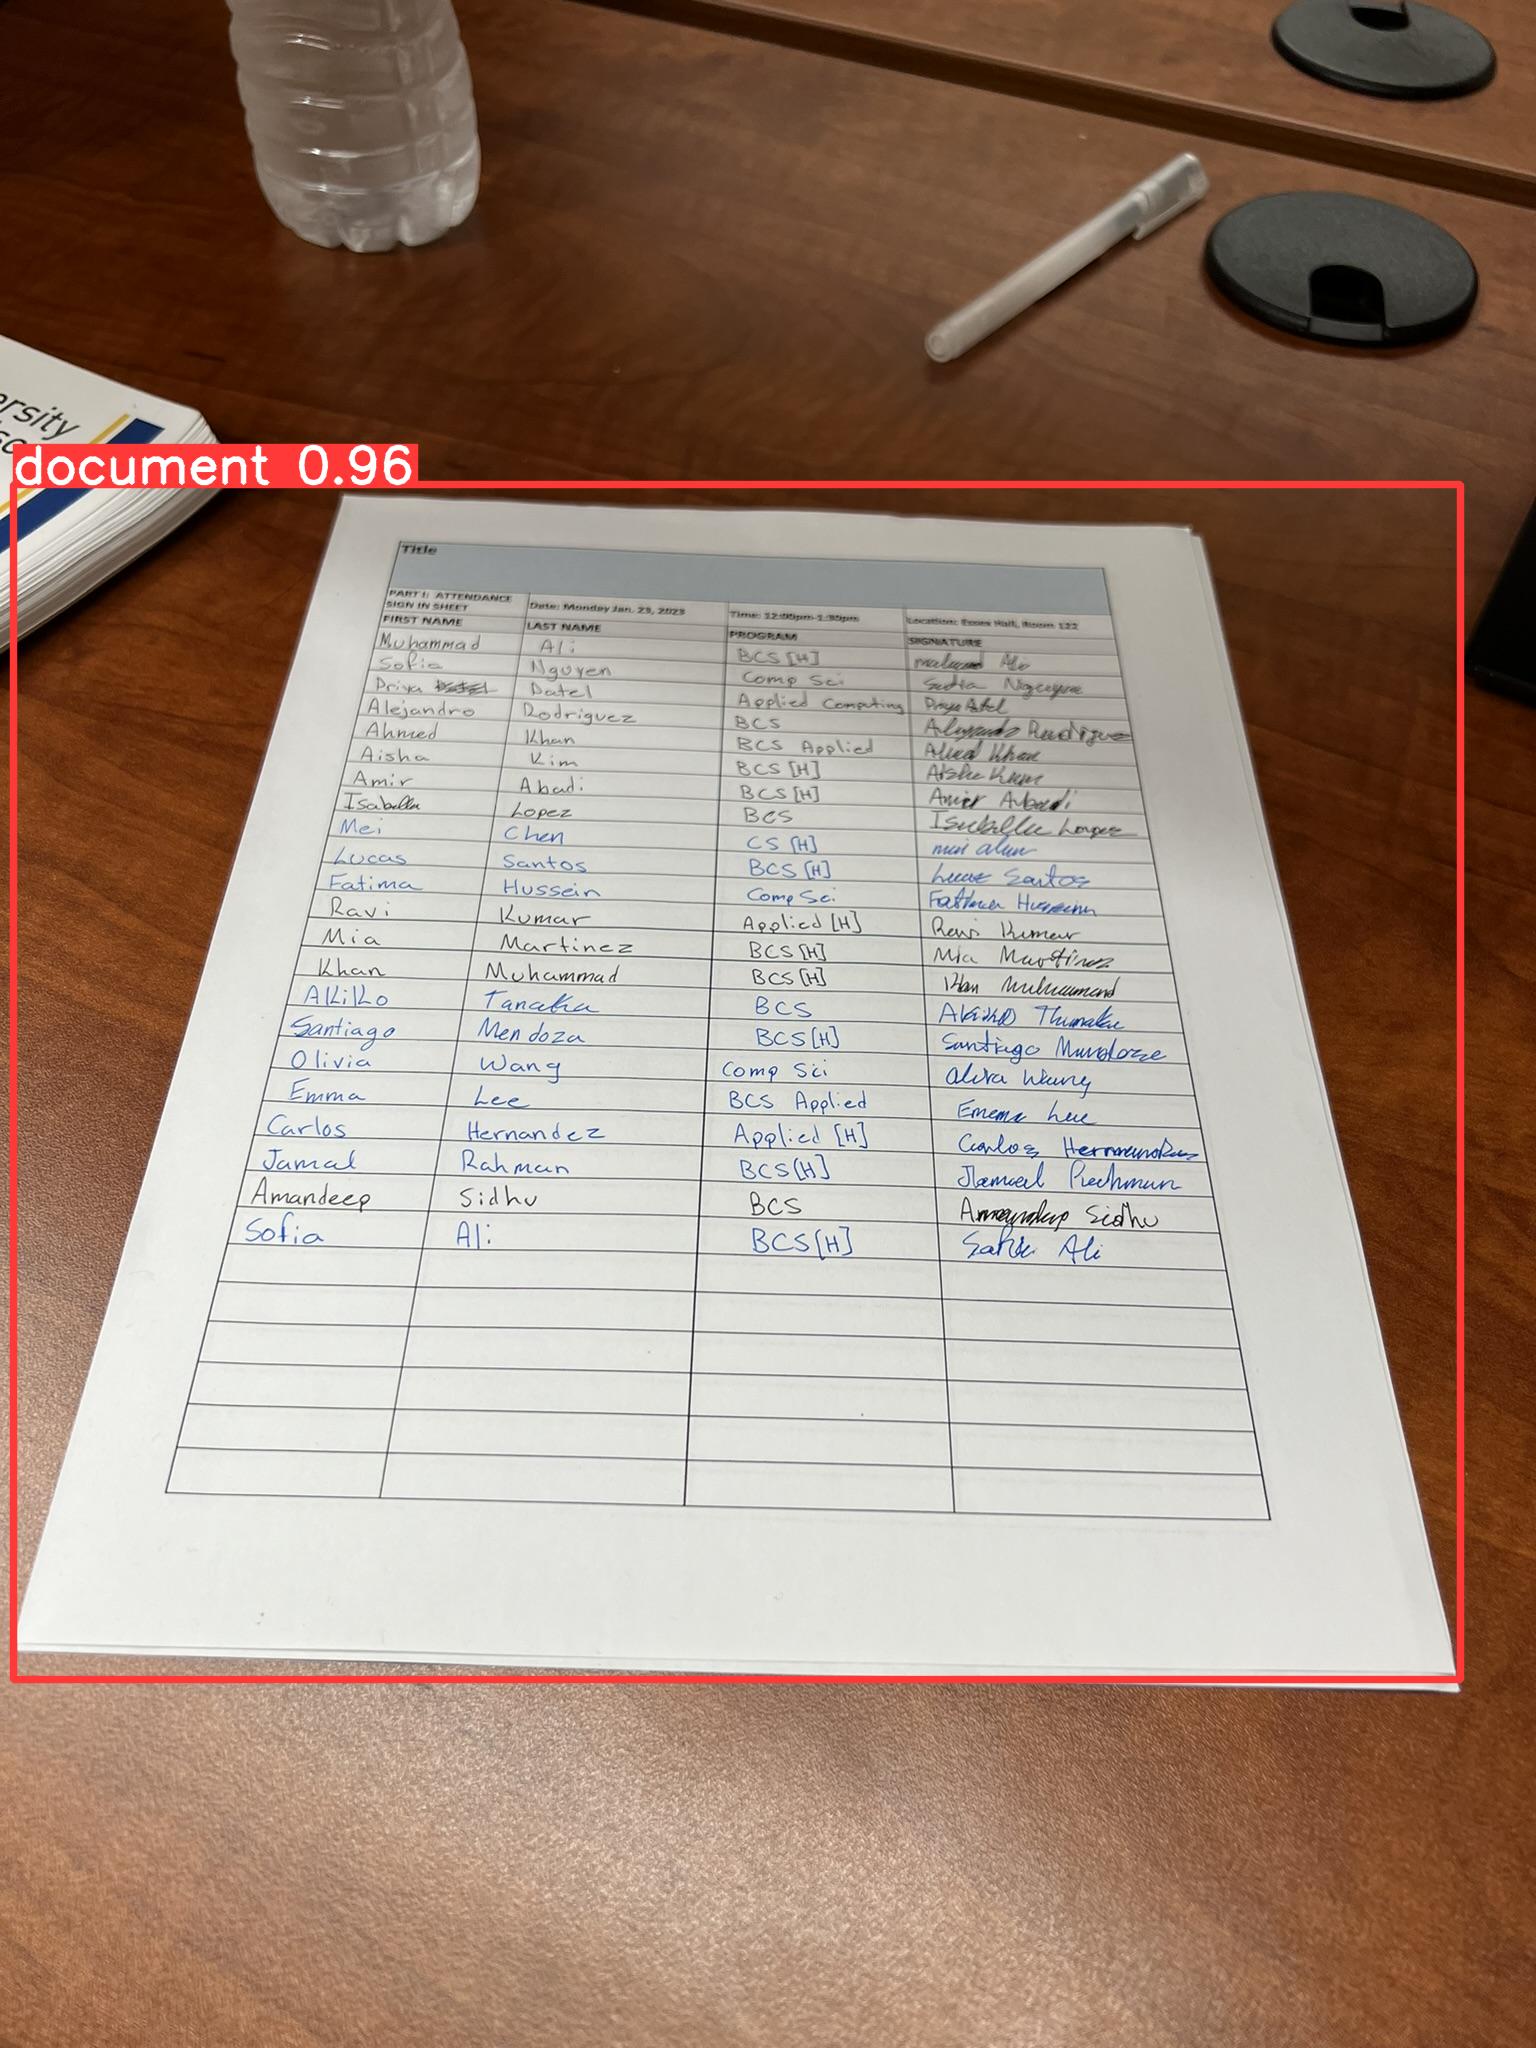 ersity
document 0.96
Title
PART I: ATTENDANCE SIGN IN SHEET Date: Monday Jan. 23, 2023 Time: 12:00pm-1:30pm Location: Essex Hall, Room 122
FIRST NAME LAST NAME PROGRAM SIGNATURE
Muhammad Ali BCS [H] Ali
Sofia Nguyen Comp Sci Nguyen
Priya Patel Applied Computing
Alejandro Rodriguez BCS Rodriguez
Ahmed Khan BCS Applied Ahmed Khan
Aisha Kim BCS [H] Aisha Kim
Amir Abadi BCS [H] Amir Abadi
Isabella Lopez BCS Isabella Lopez
Mei Chen CS [H]
Lucas Santos BCS [H] Lucas Santos
Fatima Hussein Comp Sci Fatima Hussein
Ravi Kumar Applied [H] Ravi Kumar
Mia Martinez BCS [H] Mia Martinez
Khan Muhammad BCS [H] Khan Muhammad
Akiko Tanaka BCS Akiko
Santiago Mendoza BCS [H] Santiago Mendoza
Olivia Wang Comp Sci Wang
Emma Lee BCS Applied Emma Lee
Carlos Hernandez Applied [H] Carlos Hernandez
Jamal Rahman BCS [H] Jamal Rahman
Amandeep Sidhu BCS Amandeep Sidhu
Sofia Ali BCS [H] Ali